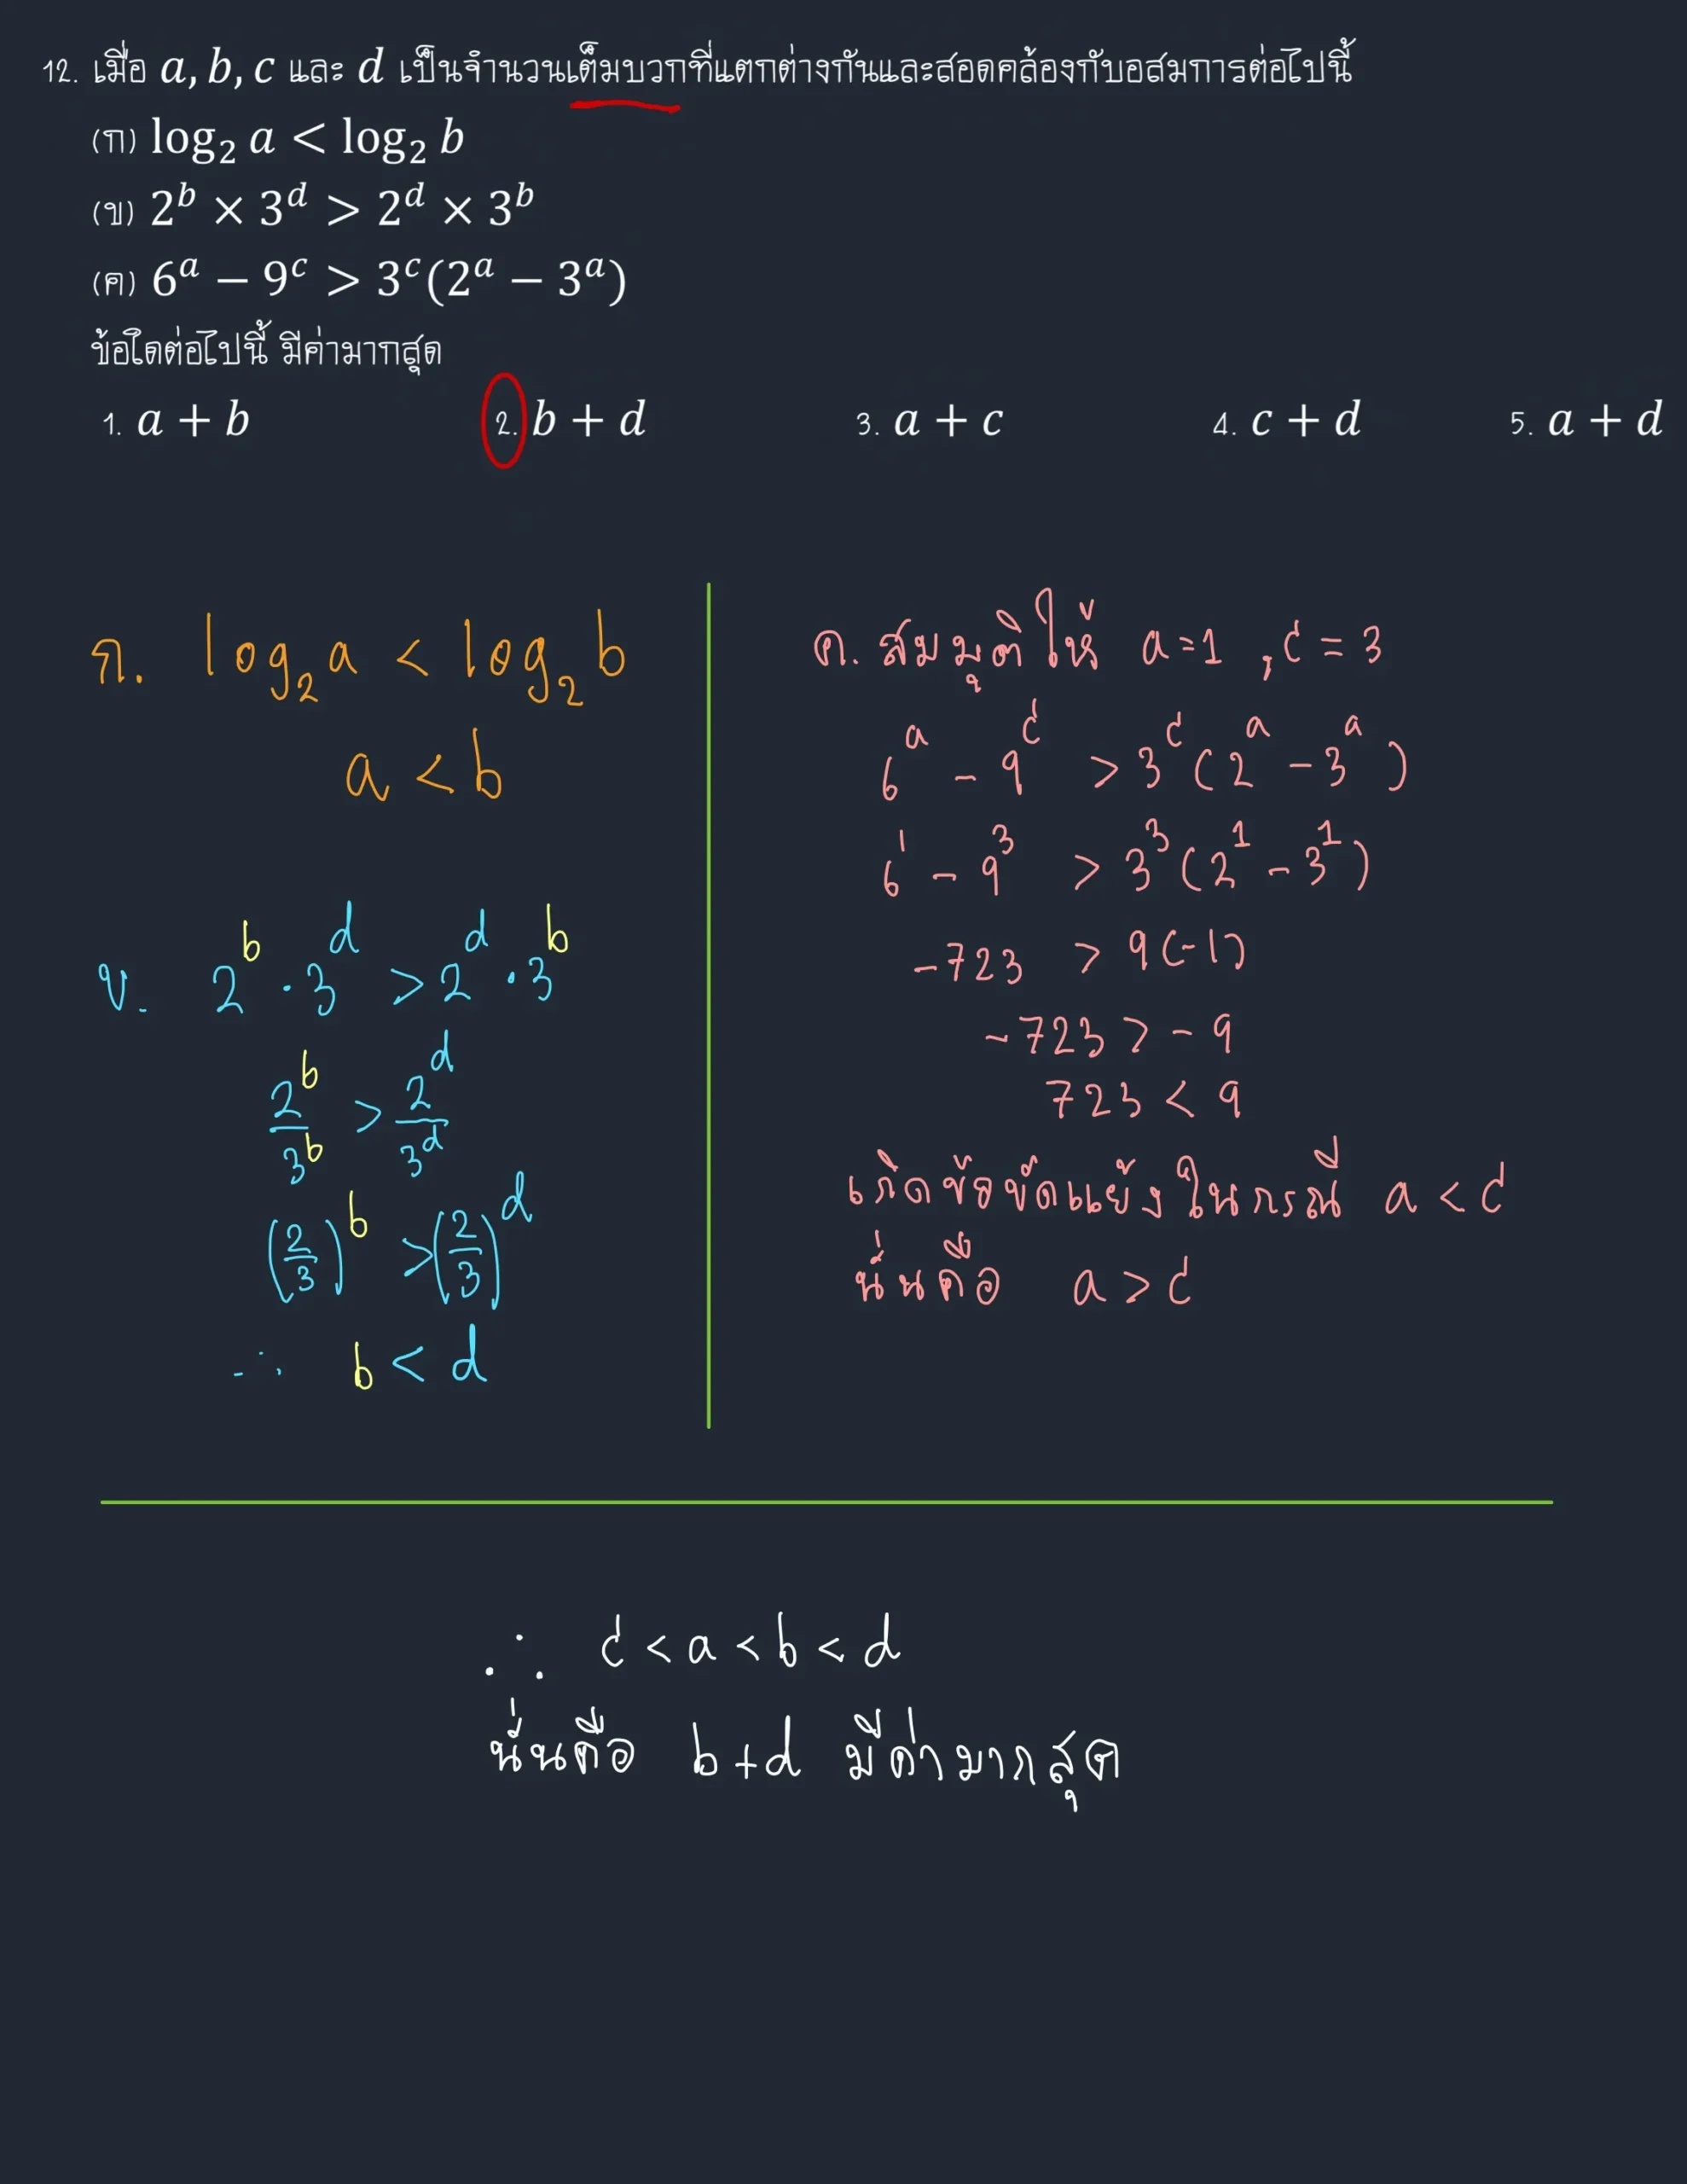 12. เมื่อ a, b, c และ d เป็นจำนวนเต็มบวกที่แตกต่างกันและสอดคล้องกับอสมการต่อไปนี้
(ก) log₂ a < log₂ b
(ข) 2ᵇ × 3ᵈ > 2ᵈ × 3ᵇ
(ค) 6ᵃ − 9ᶜ > 3ᶜ(2ᵃ − 3ᵃ)
ข้อใดต่อไปนี้ มีค่ามากสุด
1. a + b 2. b + d 3. a + c 4. c + d 5. a + d
ก. log₂a < log₂b
a < b
ข. 2ᵇ · 3ᵈ > 2ᵈ · 3ᵇ
2ᵇ/3ᵇ > 2ᵈ/3ᵈ
(2/3)ᵇ > (2/3)ᵈ
∴ b < d
ค. สมมุติให้ a = 1 , c = 3
6ᵃ − 9ᶜ > 3ᶜ(2ᵃ − 3ᵃ)
6¹ − 9³ > 3³(2¹ − 3¹)
−723 > 9(−1)
−723 > −9
723 < 9
เกิดข้อขัดแย้งในกรณี a < c
นั่นคือ a > c
∴ c < a < b < d
นั่นคือ b+d มีค่ามากสุด